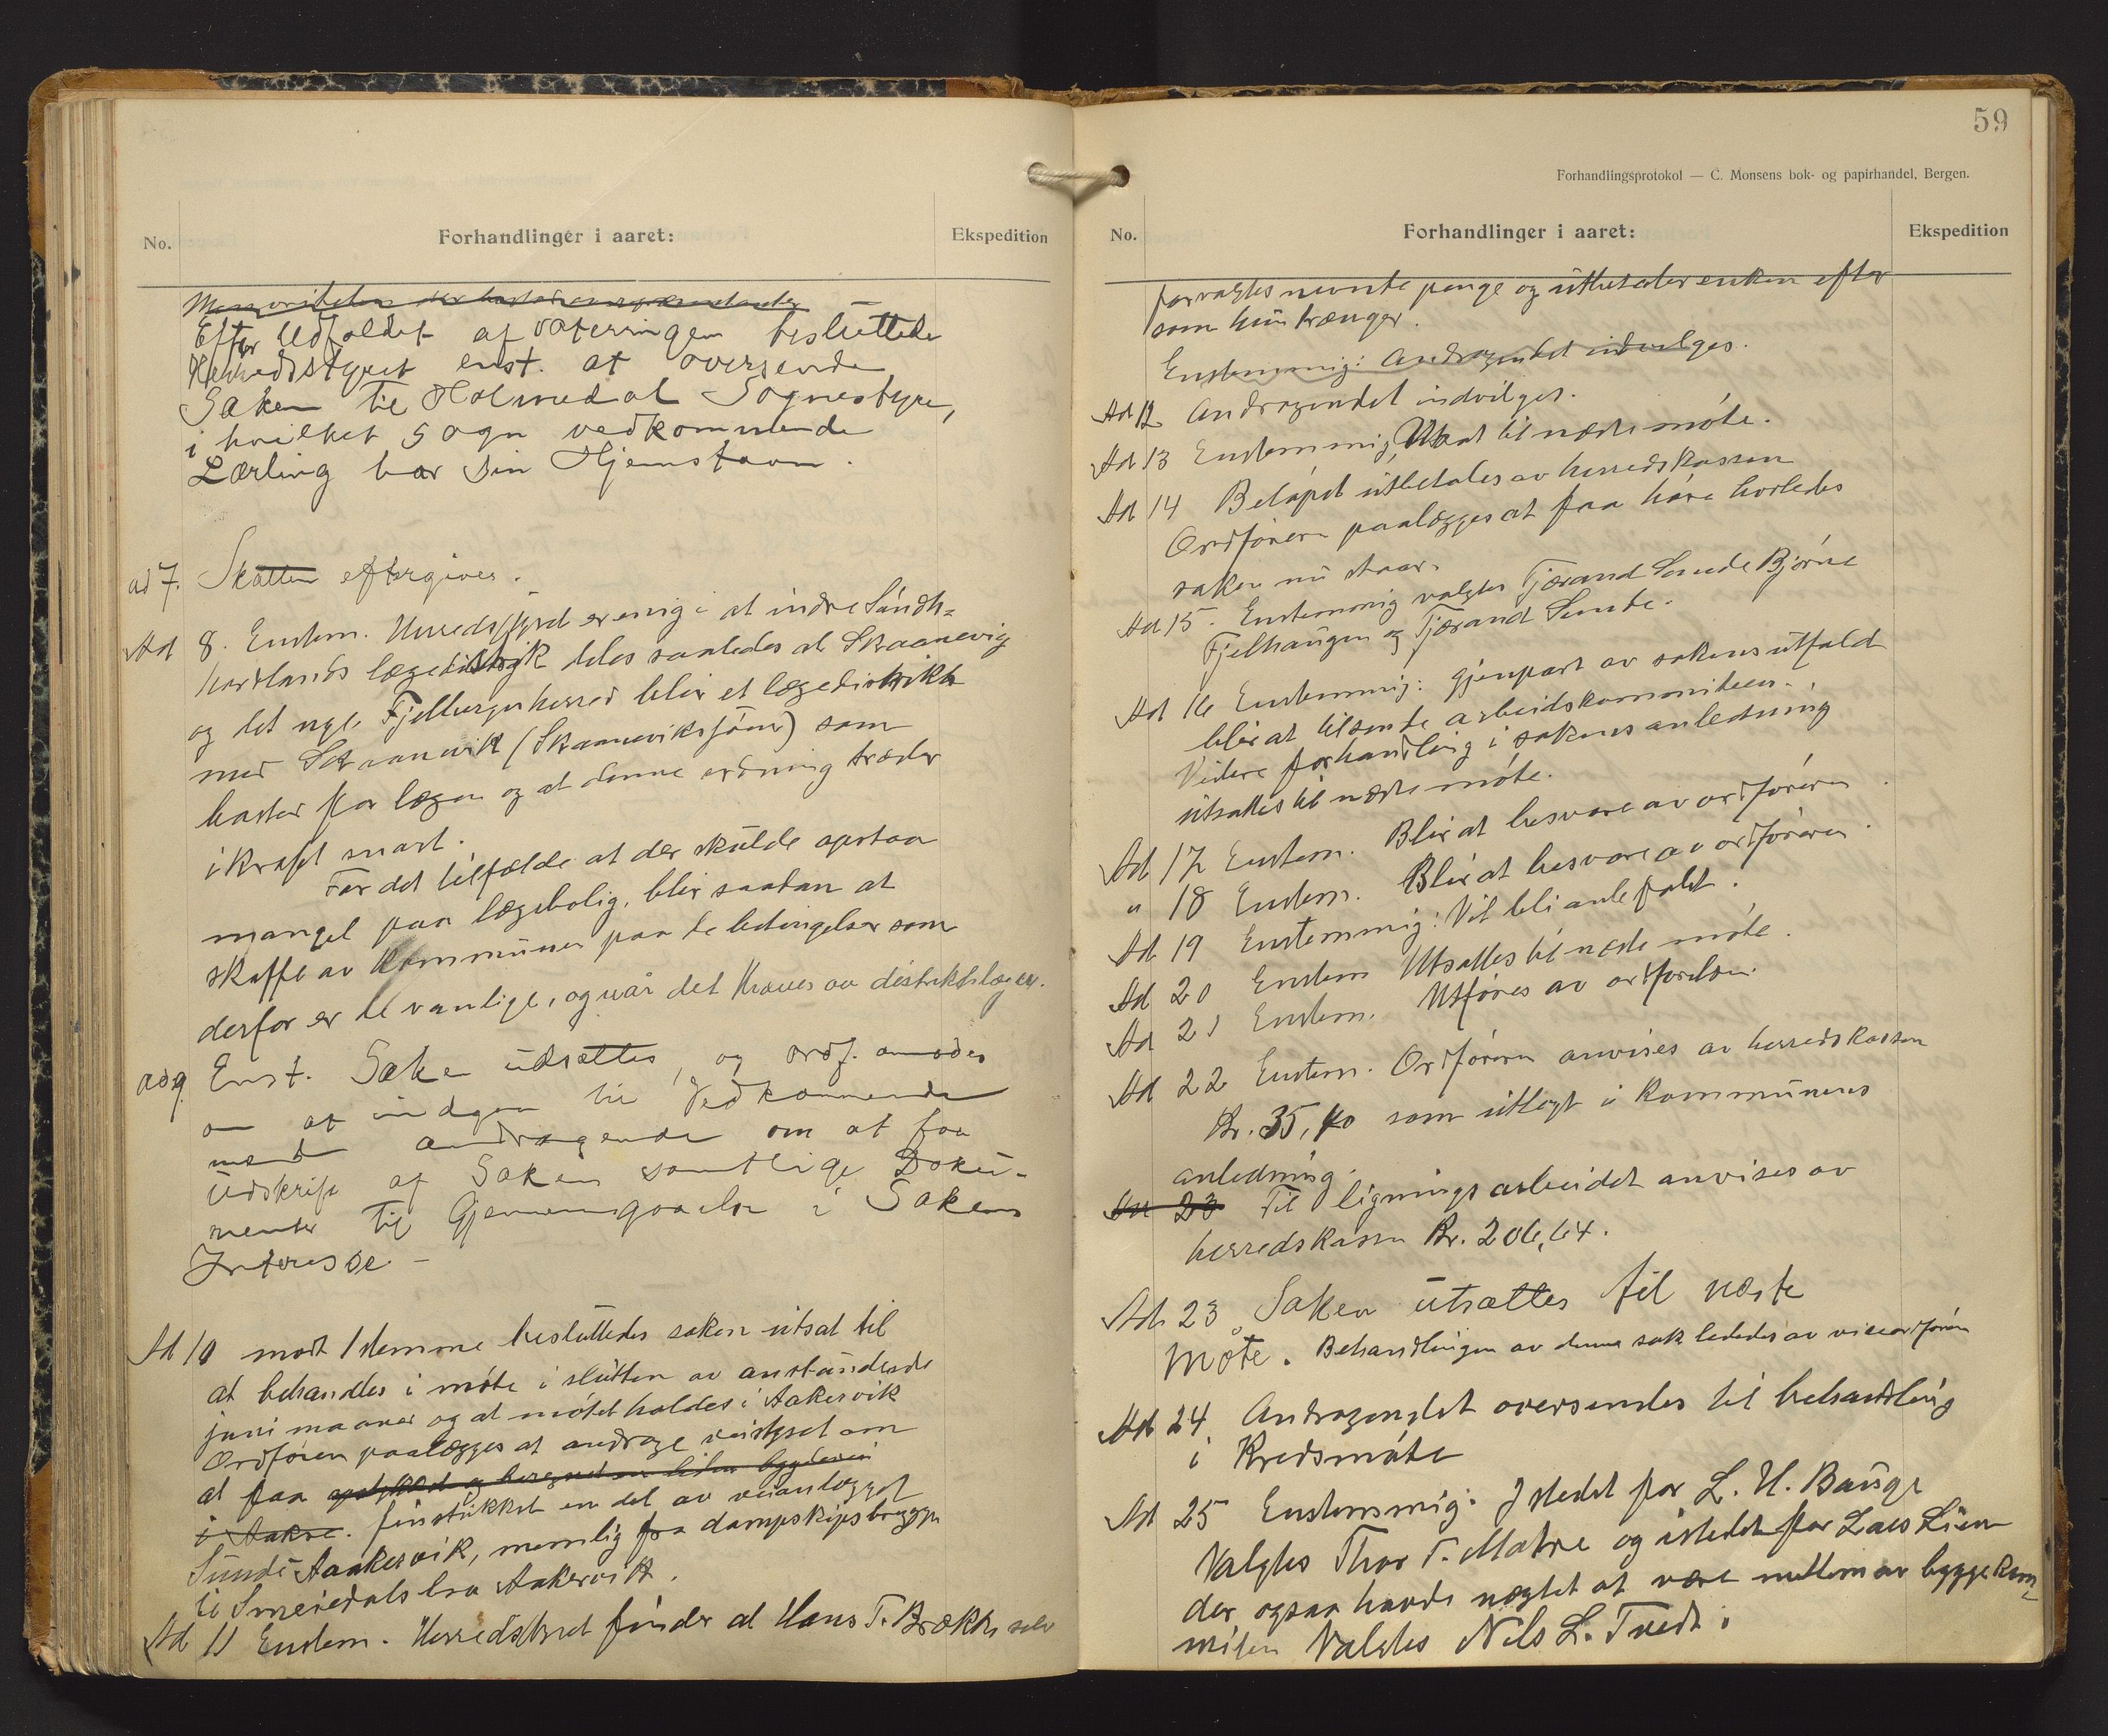 No.
Forhandlinger i aaret:
Ekspedition
Efter Udfaldet af Voteringen besluttede
Herredsstyret enst. at oversende
Saken til Holmedal Sognestyre,
i hvilket Sogn vedkommende
Lærling har sin Hjemstavn.
ad 7. Skatten eftergives.
Ad 8. Enstem. Herredsstyret er enig i at indre Söndh=
hordlands lægedistrik deles saaledes at Skaanevig
og det nye Fjelbergherred blir et lægedistrikt
med Skaanevik (Skaaneviksjöen) som
bosted for lægen og at denne ordning træder
ikraft snart.
For det tilfælde at der skulde opstaa
mangel paa lægebolig, blir saadan at
skaffe av kommunen paa de betingelser som
derfor er de vanlige, og når det kræves av distriktslægen.
ad 9 Enst. Saken udsættes, og ordf. anmodes
om at indgaa til Vedkommende
med andragende om at faa
Udskrift af Sakens samtlige Doku-
menter til Gjennemgaaelse i Sakens
Interesse. -
Ad 10 mot 1 stemme besluttedes saken utsat til
at behandles i möte i slutten av anstundende
juni maaned og at mötet holdes i Aakervik
Ordfören paalægges at andrage veistyret om
at faa
i Aakre. finstukket en del av veianlægget
Sunde Aakervik, nemlig fra dampskipsbryggen
til Smededalsbra Aakervik.
Ad 11 Enstem. Herredstyret finder at Hans T. Brække selv
59
Forhandlingsprotokol — C. Monsens bok- og papirhandel, Bergen.
No.
Forhandlinger i aaret:
Ekspedition
forvaltes nevnte penge og utbetaler enken efter
som hun trænger.
Enstemmig: Andragendet indvilges.
Ad 12 Andragendet indvilget.
Ad 13 Enstemmig, Utsat til næste möte.
Ad 14 Belöpet utbetales av herredskassen
Ordföreren paalægges at faa höre hvorledes
saken nu staar.
Ad 15. Enstemmig valgtes Tjerand Sunde Björne
Fjelhaugen og Tjerand Sunde.
Ad 16 Enstemmig: Gjenpart av sakens utfald
blir at tilsende arbeidskommiteen.
Videre forhandling i sakens anledning
utsættes til næste möte.
Ad 17 Enstem. Blir at besvare av ordföreren
" 18 Enstem. Blir at besvare av ordföreren.
Ad 19 Enstemmig: Vil bli anbefalet.
Ad 20 Enstem Utsættes til næste möte.
Ad 21 Enstem. Utföres av ordföreren.
Ad 22 Enstem. Ordföreren anvises av herredskassen
Kr. 35,40 som utlagt i kommunens
anledning.
Ad 23 Til ligningsarbeidet anvises av
herredskassen Kr. 206,64.
Ad 23. Saken utsættes til næste
møte. Behandlingen av denne sak lededes av viceordfören
Ad 24. Andragendet oversendes til behandling
i Kredsmöte
Ad 25 Enstemmig: I stedet for L. H. Bauge
Valgtes Thor T. Matre og istedet for Lars Lien
der ogsaa havde nægtet at være medlem av byggekom=
miteen Valgtes Nils L. Tvedt.